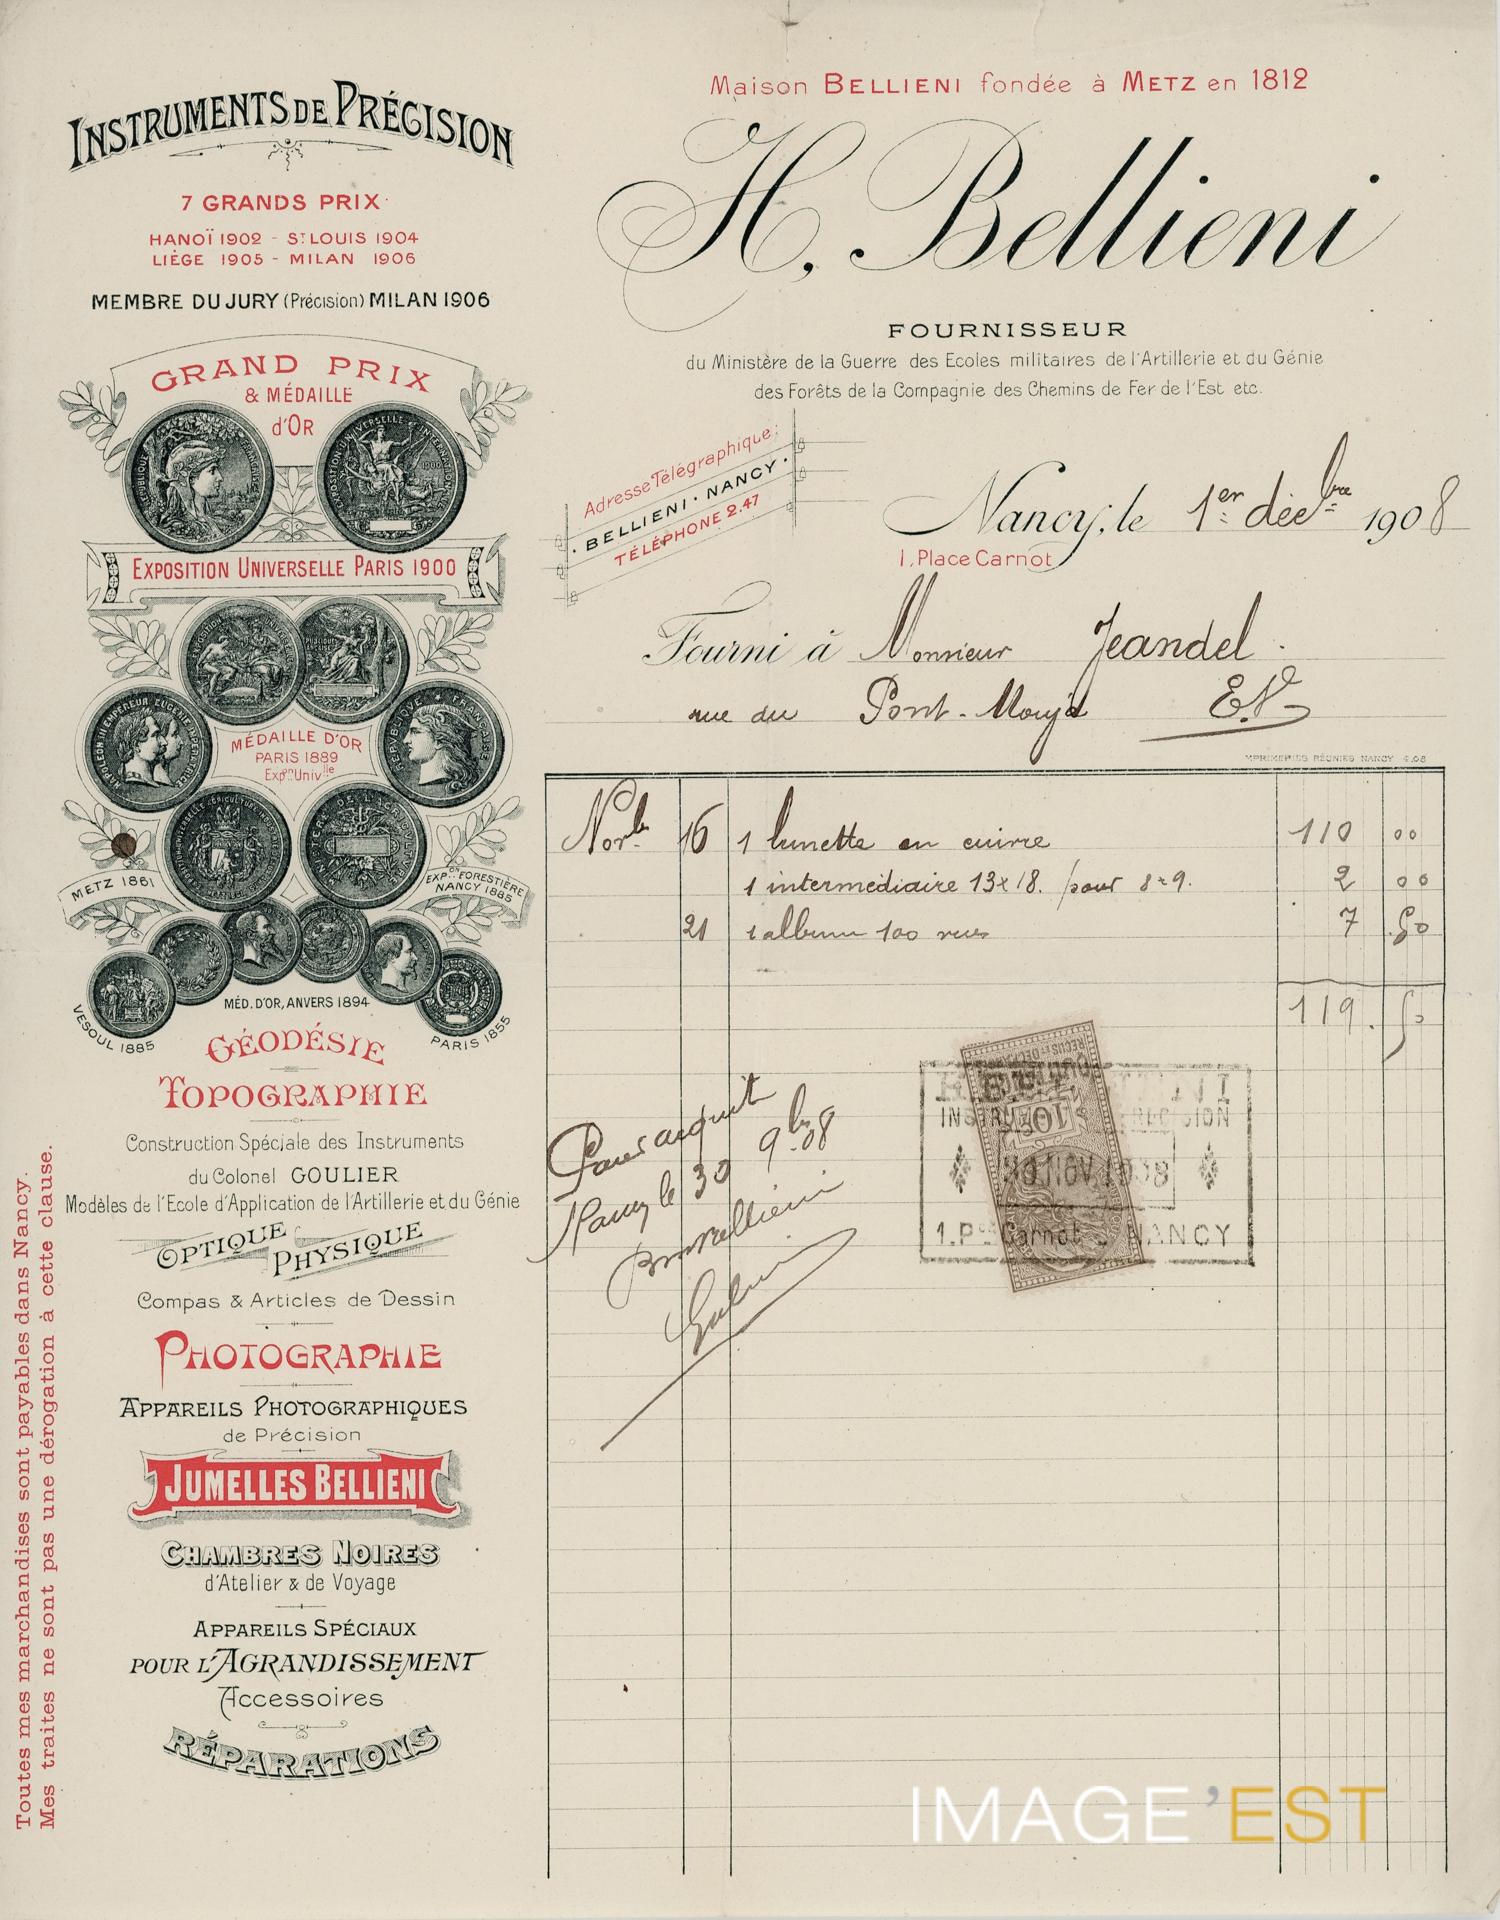 INSTRUMENTS DE PRÉCISION
7 GRANDS PRIX
HANOÏ 1902 - ST LOUIS 1904
LIÈGE 1905 - MILAN 1906
MEMBRE DU JURY (Précision) MILAN 1906
GRAND PRIX
& MÉDAILLE
d'Or
EXPOSITION UNIVERSELLE PARIS 1900
MÉDAILLE D'OR
PARIS 1889
Expon Univlle
METZ 1861
EXPON FORESTIÈRE
NANCY 1885
MÉD. D'OR, ANVERS 1894
VESOUL 1885
PARIS 1855
GÉODÉSIE
TOPOGRAPHIE
Construction Spéciale des Instruments
du Colonel GOULIER
Modèles de l'Ecole d'Application de l'Artillerie et du Génie
OPTIQUE
PHYSIQUE
Compas & Articles de Dessin
PHOTOGRAPHIE
APPAREILS PHOTOGRAPHIQUES
de Précision
JUMELLES BELLIENI
CHAMBRES NOIRES
d'Atelier & de Voyage
APPAREILS SPÉCIAUX
POUR L'AGRANDISSEMENT
Accessoires
RÉPARATIONS
Toutes mes marchandises sont payables dans Nancy.
Mes traites ne sont pas une dérogation à cette clause.
Maison BELLIENI fondée à METZ en 1812
H. Bellieni
FOURNISSEUR
du Ministère de la Guerre des Ecoles militaires de l'Artillerie et du Génie
des Forêts de la Compagnie des Chemins de Fer de l'Est etc.
Adresse Télégraphique:
· BELLIENI · NANCY ·
TÉLÉPHONE 2.47
Nancy, le 1er décbre 1908
1, Place Carnot
Fourni à Monsieur Jeandel
rue du Pont-Mouja E.V.
IMPRIMERIES RÉUNIES NANCY 4.08
Novbr 16 1 lunette en cuivre 110 00
1 intermédiaire 13x18. pour 8x9. 2 00
21 1 album 100 vues 7 50
119. 50
Pour acquit
Nancy le 30 9br 08
Bellieni
INSTRUMENTS PRÉCISION
1. Pce Carnot NANCY
IMAGE'EST